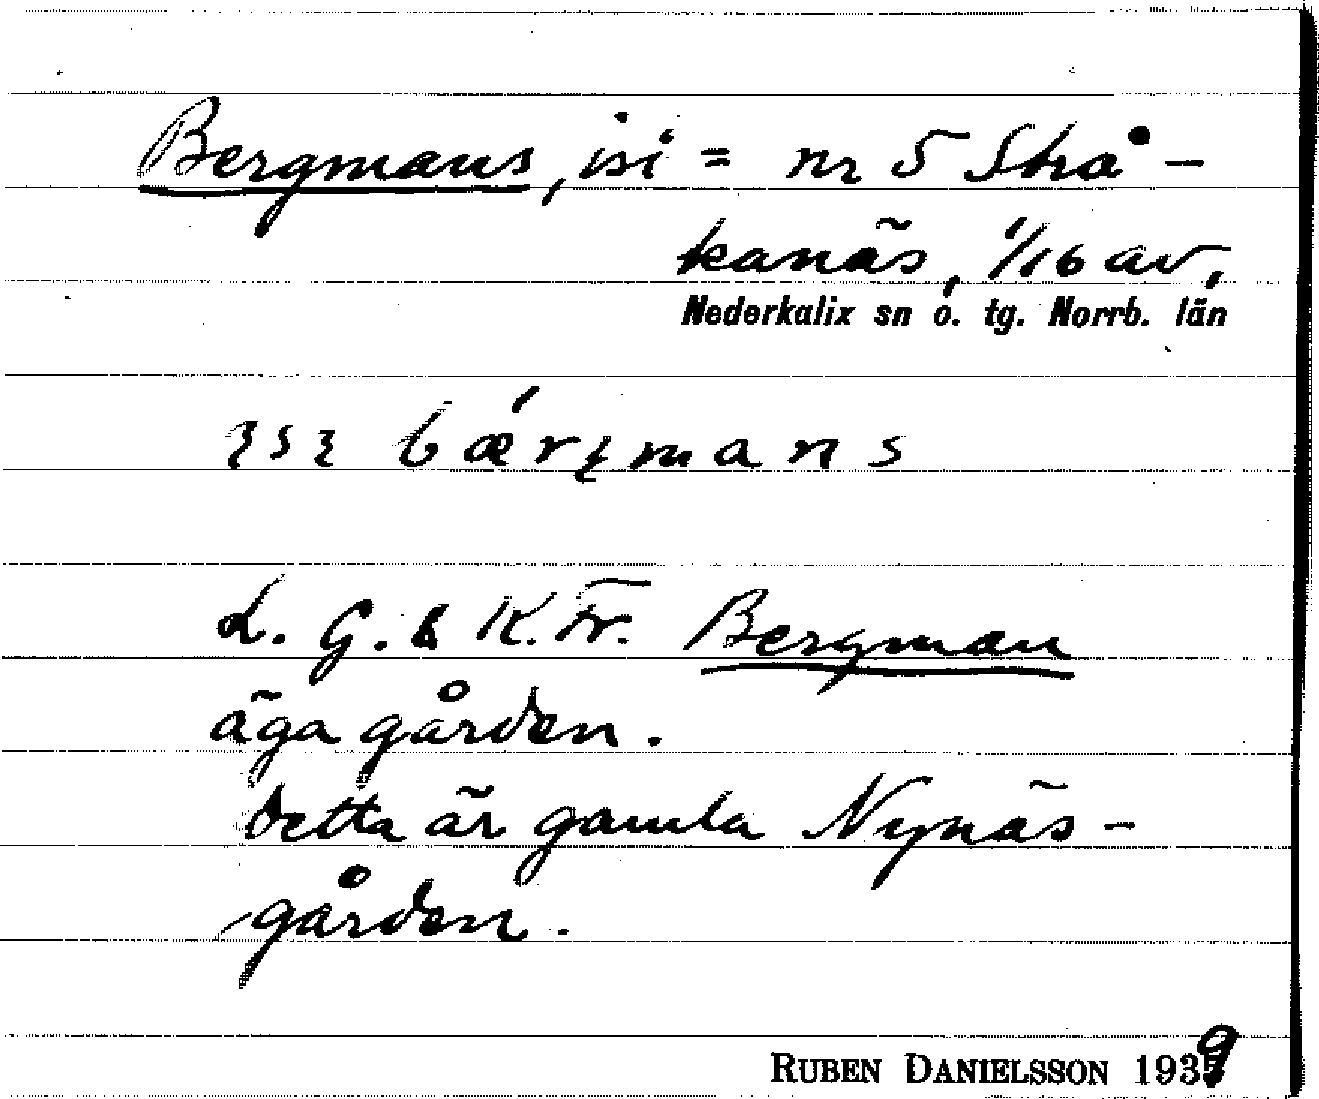 Bergmans, isi = nr 5 Strå-
kanäs, 1/16 av,
Nederkalix sn o. tg. Norrb. län
bǽrɟmans
L. G. & K. Fr. Bergman
äga gården.
Detta är gamla Nynäs-
gården.
RUBEN DANIELSSON 1939